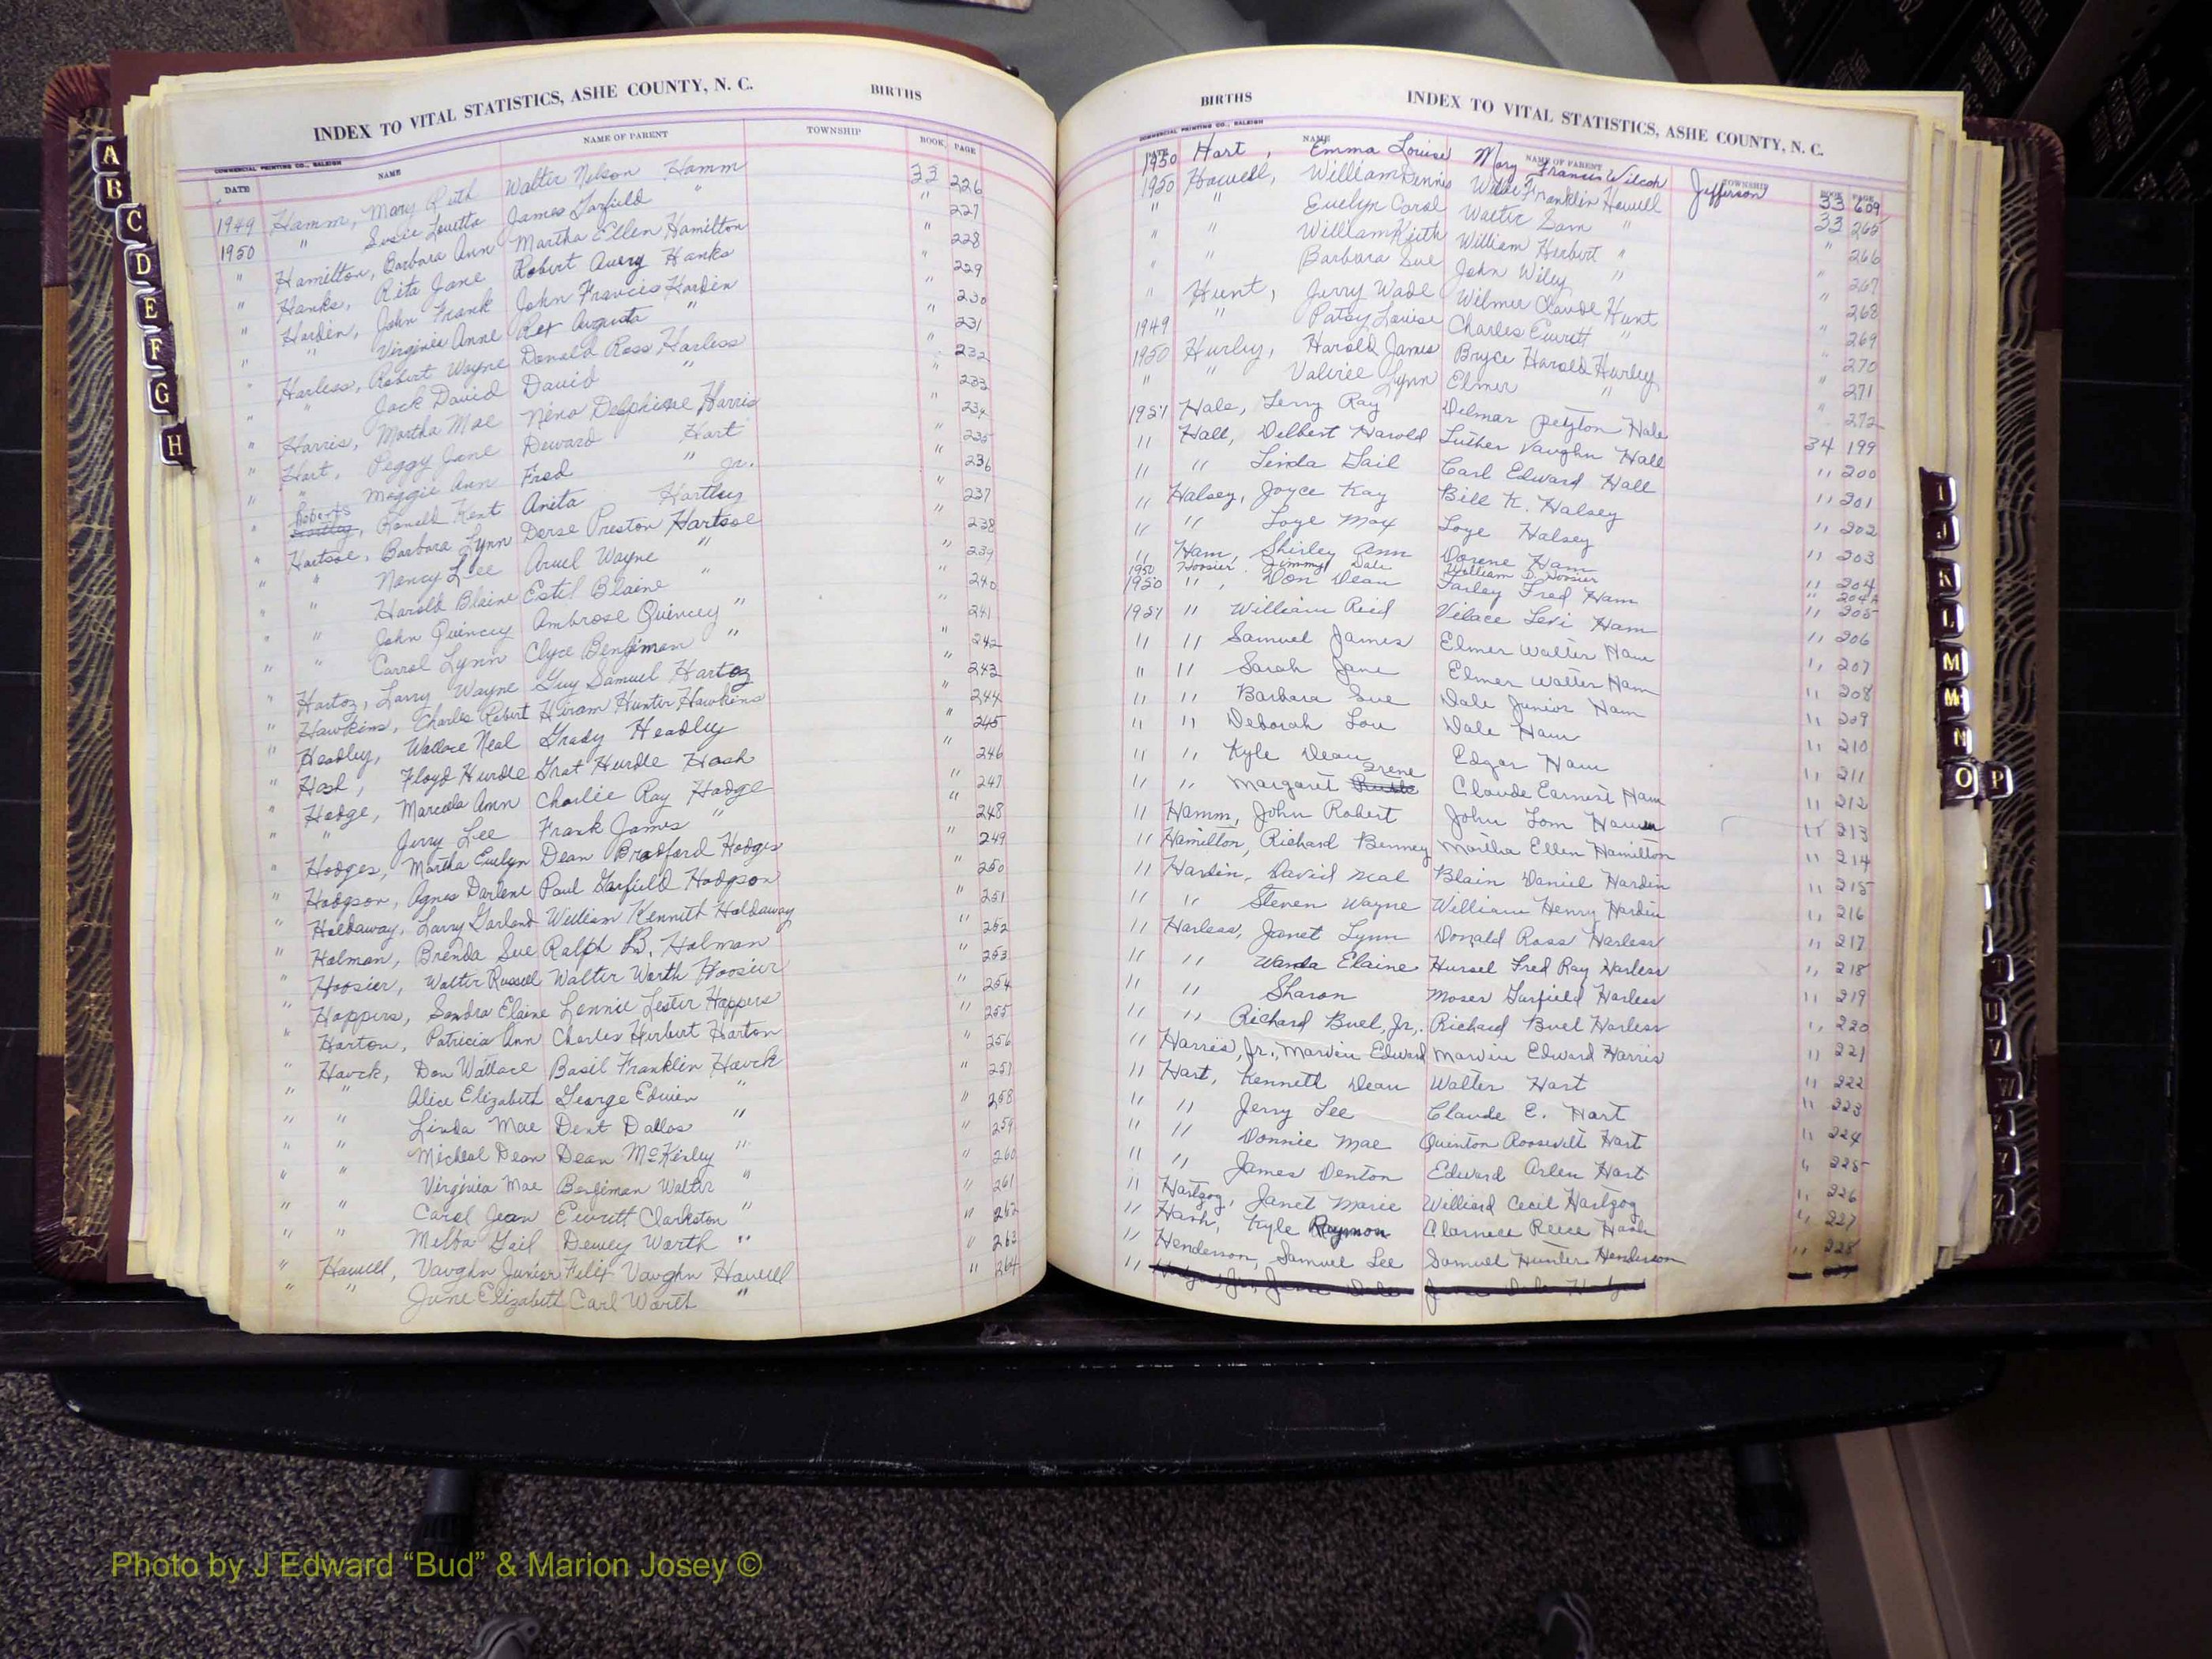 INDEX TO VITAL STATISTICS, ASHE COUNTY, N. C. BIRTHS
COMMERCIAL PRINTING CO., RALEIGH
DATE NAME NAME OF PARENT TOWNSHIP BOOK PAGE
1949 Hamm, Mary Ruth Walter Nelson Hamm 33 226
1950 " Susie Louetta James Garfield " " 227
" Hamilton, Barbara Ann Martha Ellen Hamilton " 228
" Hanks, Rita Jane Robert Avery Hanks " 229
" Harden, John Frank John Francis Harden " 230
" " Virginia Anne Rex Augusta " " 231
" Harless, Robert Wayne Donald Ross Harless " 232
" " Jack David David " " 233
" Harris, Martha Mae Neno Delphine Harris " 234
" Hart, Peggy Jane Deward Hart " 235
" " Maggie Ann Fred " Jr. " 236
" Roberts Ronald Kent Anita Hartley " 237
" Hartsoe, Barbara Lynn Dorse Preston Hartsoe " 238
" " Nancy Lee Aruel Wayne " " 239
" " Harold Blaine Estel Blaine " " 240
" " John Quincey Ambrose Quincey " " 241
" " Carrol Lynn Clyce Benjiman " " 242
" Hartoz, Larry Wayne Guy Samuel Hartoz " 243
" Hawkins, Charles Robert Hiram Hunter Hawkins " 244
" Headley, Wallace Neal Grady Headley " 245
" Hash, Floyd Hurdle Grat Hurdle Hash " 246
" Hodge, Marcela Ann Charlie Ray Hodge " 247
" " Jerry Lee Frank James " " 248
" Hodges, Martha Evelyn Dean Bradford Hodges " 249
" Hodgson, Agnes Darlene Paul Garfield Hodgson " 250
" Holdaway, Larry Garland William Kennith Holdaway " 251
" Holman, Brenda Sue Ralph B. Holman " 252
" Hoosier, Walter Russell Walter Worth Hoosier " 253
" Hoppers, Sandra Elaine Lennie Lester Hoppers " 254
" Horton, Patricia Ann Charles Herbert Horton " 255
" Houck, Don Wallace Basil Franklin Houck " 256
" " Alice Elizabeth George Edwin " " 257
" " Linda Mae Dent Dallas " " 258
" " Micheal Dean Dean McKinley " " 259
" " Virginia Mae Benjiman Walter " " 260
" " Carol Jean Everett Clarkston " " 261
" " Melba Gail Dewey Worth " " 262
" Howell, Vaughn Junior Felix Vaughn Howell " 263
" " June Elizabeth Carl Worth " " 264
BIRTHS INDEX TO VITAL STATISTICS, ASHE COUNTY, N. C.
COMMERCIAL PRINTING CO., RALEIGH
DATE NAME NAME OF PARENT TOWNSHIP BOOK PAGE
1950 Hart, Emma Louise Mary Francis Wilcox Jefferson 33 609
1950 Howell, William Dennis Willie Franklin Howell 33 265
" " Evelyn Carol Walter Sam " " 266
" " William Keith William Herbert " " 267
" " Barbara Sue John Wiley " " 268
" Hunt, Jerry Wade Wilmer Claude Hunt " 269
1949 " Patsy Louise Charles Everett " " 270
1950 Hurley, Harold James Bryce Harold Hurley " 271
" " Valiree Lynn Elmer " " 272
1951 Hale, Terry Ray Delmar Peyton Hale 34 199
" Hall, Delbert Harold Luther Vaughn Hall " 200
" " Linda Gail Carl Edward Hall " 201
" Halsey, Joyce Kay Bill K. Halsey " 202
" " Loye Max Loye Halsey " 203
" Ham, Shirley Ann Dorene Ham " 204
1950 Hoosier, Jimmy Dale William D. Hoosier " 204A
1950 " Don Dean Farley Fred Ham " 205
1951 " William Reid Vilace Levi Ham " 206
" " Samuel James Elmer Walter Ham " 207
" " Sarah Jane Elmer Walter Ham " 208
" " Barbara Sue Dale Junior Ham " 209
" " Deborah Lou Dale Ham " 210
" " Kyle Dean Edgar Ham " 211
" " Margaret Irene Claude Earnest Ham " 212
" Hamm, John Robert John Tom Hamm " 213
" Hamilton, Richard Benney Martha Ellen Hamilton " 214
" Hardin, David Neal Blain Daniel Hardin " 215
" " Steven Wayne William Henry Hardin " 216
" Harless, Janet Lynn Donald Ross Harless " 217
" " Wanda Elaine Hursel Fred Ray Harless " 218
" " Sharon Moses Garfield Harless " 219
" " Richard Buel, Jr. Richard Buel Harless " 220
" Harris, Jr., Marvin Edward Marvin Edward Harris " 221
" Hart, Kenneth Dean Walter Hart " 222
" " Jerry Lee Claude E. Hart " 223
" " Donnie Mae Quinton Roosevelt Hart " 224
" " James Denton Edward Arlen Hart " 225
" Hartzog, Janet Marie Williard Cecil Hartzog " 226
" Hash, Kyle Raymon Clarence Reece Hash " 227
" Henderson, Samuel Lee Samuel Hunter Henderson " 228
A
B
C
D
E
F
G
H
I
J
K
L
M
M
N
O P
T
U
V
W
Photo by J Edward “Bud” & Marion Josey ©